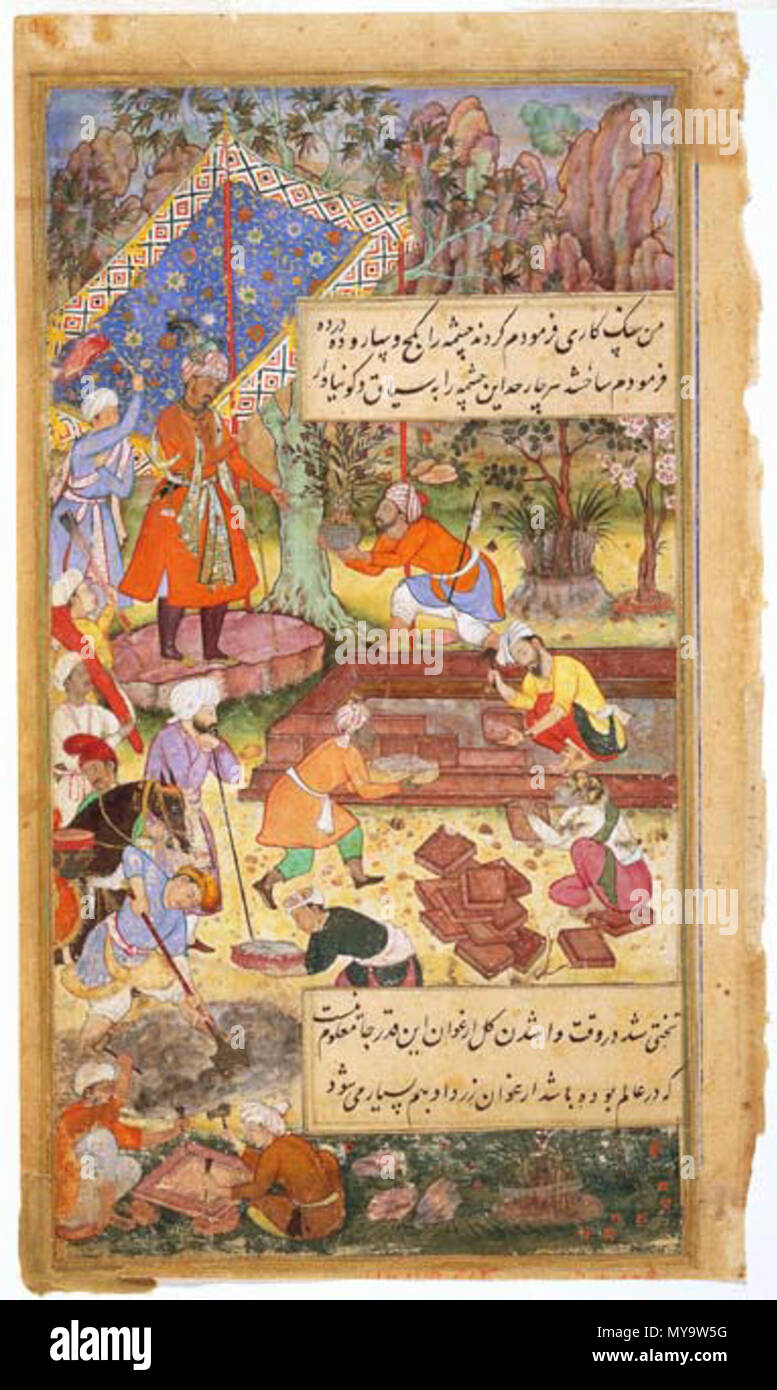 من سنگ کاری فرمودم کردند چشمه را بکچ و سپاروده درده
فرمودم ساختند هر چار حد این چشمه را به سیاق و کونیا دار
تختی شد در وقت وا شدن کل ارغوان این قدر جا معلوم نیست
که در عالم بوده باشد ارغوان زرد او هم بسیار می شود
alamy
alamy stock photo
MY9W5G
www.alamy.com